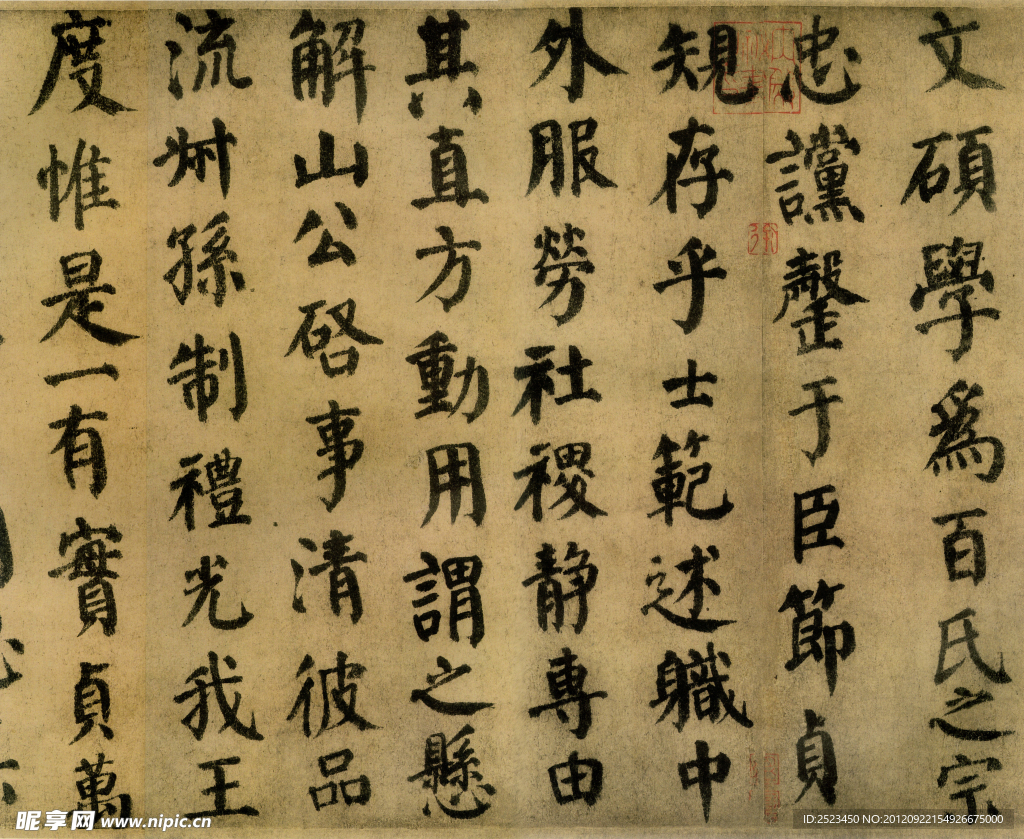 文碩學爲百氏之宗
忠讜罄于臣節貞
規存乎士範述職中
外服勞社稷静專由
其直方動用謂之懸
解山公啓事清彼品
流叔孫制禮光我王
度惟是一有實貞萬
昵享网 www.nipic.cn
ID:2523450 NO:20120922154926675000